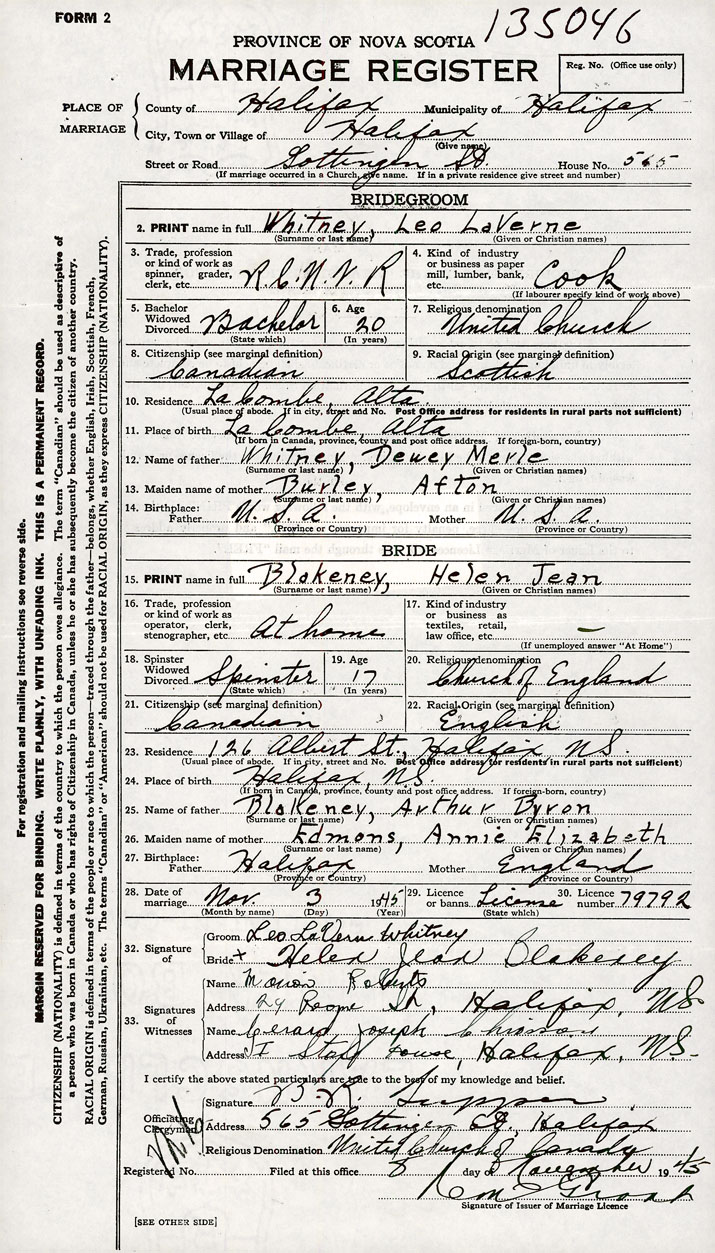 FORM 2
135046
PROVINCE OF NOVA SCOTIA
MARRIAGE REGISTER
Reg. No. (Office use only)
PLACE OF MARRIAGE
County of Halifax Municipality of Halifax
City, Town or Village of Halifax
(Give name)
Street or Road Gottingen St. House No. 565
(If marriage occurred in a Church, give name. If in a private residence give street and number)
BRIDEGROOM
2. PRINT name in full Whitney, Leo LaVerne
(Surname or last name) (Given or Christian names)
3. Trade, profession or kind of work as spinner, grader, clerk, etc. R.C.N.V.R
4. Kind of industry or business as paper mill, lumber, bank, etc. Cook
(If labourer specify kind of work above)
5. Bachelor Widowed Divorced Bachelor
(State which)
6. Age 20
(In years)
7. Religious denomination United Church
8. Citizenship (see marginal definition) Canadian
9. Racial Origin (see marginal definition) Scottish
10. Residence LaCombe, Alta
(Usual place of abode. If in city, street and No. Post Office address for residents in rural parts not sufficient)
11. Place of birth La Combe, Alta
(If born in Canada, province, county and post office address. If foreign-born, country)
12. Name of father Whitney, Dewey Merle
(Surname or last name) (Given or Christian names)
13. Maiden name of mother Burley, Afton
(Surname or last name) (Given or Christian names)
14. Birthplace: Father U.S.A. Mother U.S.A.
(Province or Country) (Province or Country)
BRIDE
15. PRINT name in full Blakeney, Helen Jean
(Surname or last name) (Given or Christian names)
16. Trade, profession or kind of work as operator, clerk, stenographer, etc. At home
17. Kind of industry or business as textiles, retail, law office, etc. –
(If unemployed answer "At Home")
18. Spinster Widowed Divorced Spinster
(State which)
19. Age 17
(In years)
20. Religious denomination Church of England
21. Citizenship (see marginal definition) Canadian
22. Racial Origin (see marginal definition) English
23. Residence 126 Albert St., Halifax NS.
(Usual place of abode. If in city, street and No. Post Office address for residents in rural parts not sufficient)
24. Place of birth Halifax, N.S.
(If born in Canada, province, county and post office address. If foreign-born, country)
25. Name of father Blakeney, Arthur Byron
(Surname or last name) (Given or Christian names)
26. Maiden name of mother Edmons, Annie Elizabeth
(Surname or last name) (Given or Christian names)
27. Birthplace: Father Halifax Mother England
(Province or Country) (Province or Country)
28. Date of marriage Nov. 3 1945
(Month by name) (Day) (Year)
29. Licence or banns License
(State which)
30. Licence number 79792
32. Signature of
Groom Leo LaVern Whitney
Bride + Helen Jean Blakeney
33. Signatures of Witnesses
Name Marion Roberts
Address 29 Roome St, Halifax, NS
Name Gerard Joseph
Address Staff House, Halifax, NS.
I certify the above stated particulars are true to the best of my knowledge and belief.
Officiating Clergyman
Signature
Address 565 Gottingen St. Halifax
Religious Denomination United Church of Canada
Registered No. Filed at this office 8 day of November 1945
Signature of Issuer of Marriage Licence
[SEE OTHER SIDE]
For registration and mailing instructions see reverse side.
MARGIN RESERVED FOR BINDING. WRITE PLAINLY, WITH UNFADING INK. THIS IS A PERMANENT RECORD.
CITIZENSHIP (NATIONALITY) is defined in terms of the country to which the person owes allegiance. The term "Canadian" should be used as descriptive of
a person who was born in Canada or who has rights of Citizenship in Canada, unless he or she has subsequently become the citizen of another country.
RACIAL ORIGIN is defined in terms of the people or race to which the person—traced through the father—belongs, whether English, Irish, Scottish, French,
German, Russian, Ukrainian, etc. The terms "Canadian" or "American" should not be used for RACIAL ORIGIN, as they express CITIZENSHIP (NATIONALITY).